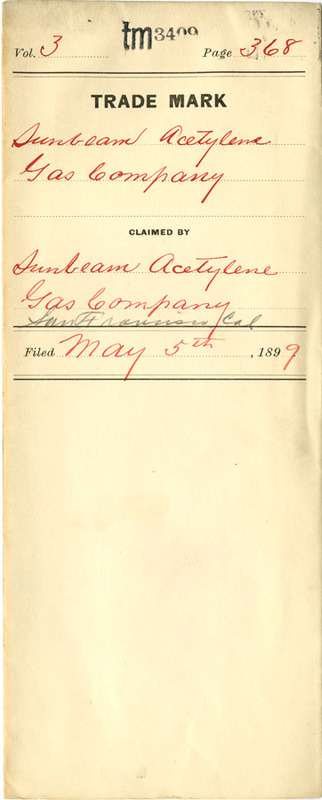 tm
Vol. 3 Page 368
TRADE MARK
Sunbeam Acetylene
Gas Company
CLAIMED BY
Sunbeam Acetylene
Gas Company
San Francisco Cal
Filed May 5th, 1899